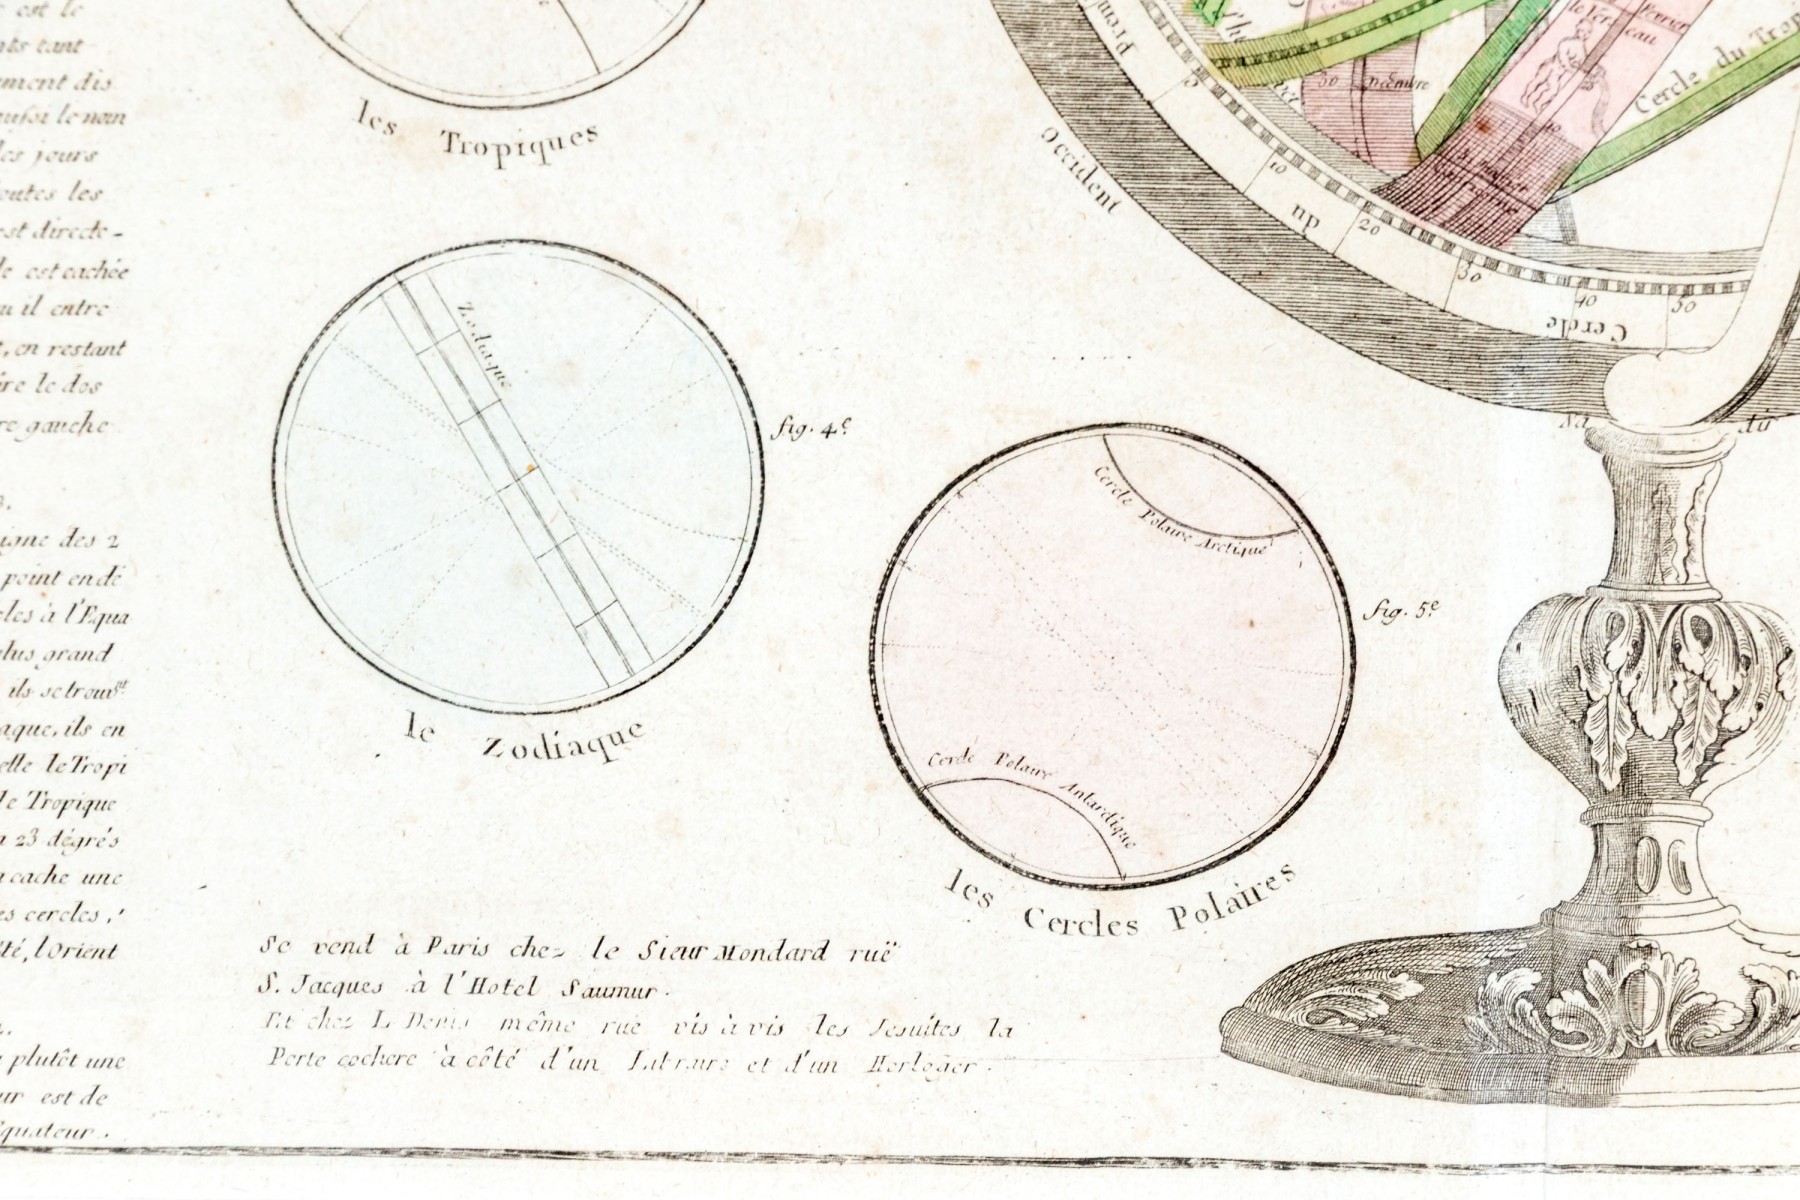 est le
nts tant
ement dis
aussi le nom
les jours
toutes les
est directe-
le est cachée
il entre
, en restant
le dos
re gauche
igne des 2
point en dé
cles à l'Equa
plus grand
ils se trouv.nt
aque, ils en
elle le Tropi
le Tropique
a 23 dégrés
cache une
es cercles,
té, l'Orient
plutôt une
ur est de
Equateur.
les Tropiques
Zodiaque
fig. 4.e
le Zodiaque
Cercle Polaire Arctique
fig. 5.e
Cercle Polaire Antarctique
les Cercles Polaires
Se vend à Paris chez le Sieur Mondard ruë
S. Jacques à l'Hotel Saumur.
Et chez L. Denis même rue vis à vis les Jesuites la
Porte cochere à côté d'un Libraire et d'un Horloger.
Occident
10
du
20
30
40
50
Cercle
30
Decembre
le Vers
eau
Cercle du Trop